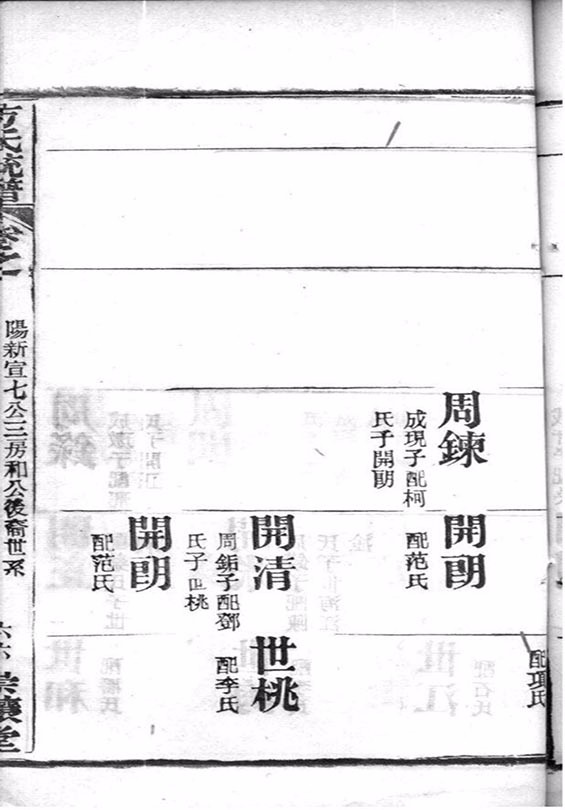 配項氏
周鍊
成現子配柯
氏子開朗
開朗
配范氏
開清
周鋁子配鄧
氏子世桃
世桃
配李氏
開朗
配范氏
方氏統譜
卷之一
陽新宣七公三房和公後裔世系
六六
崇讓堂